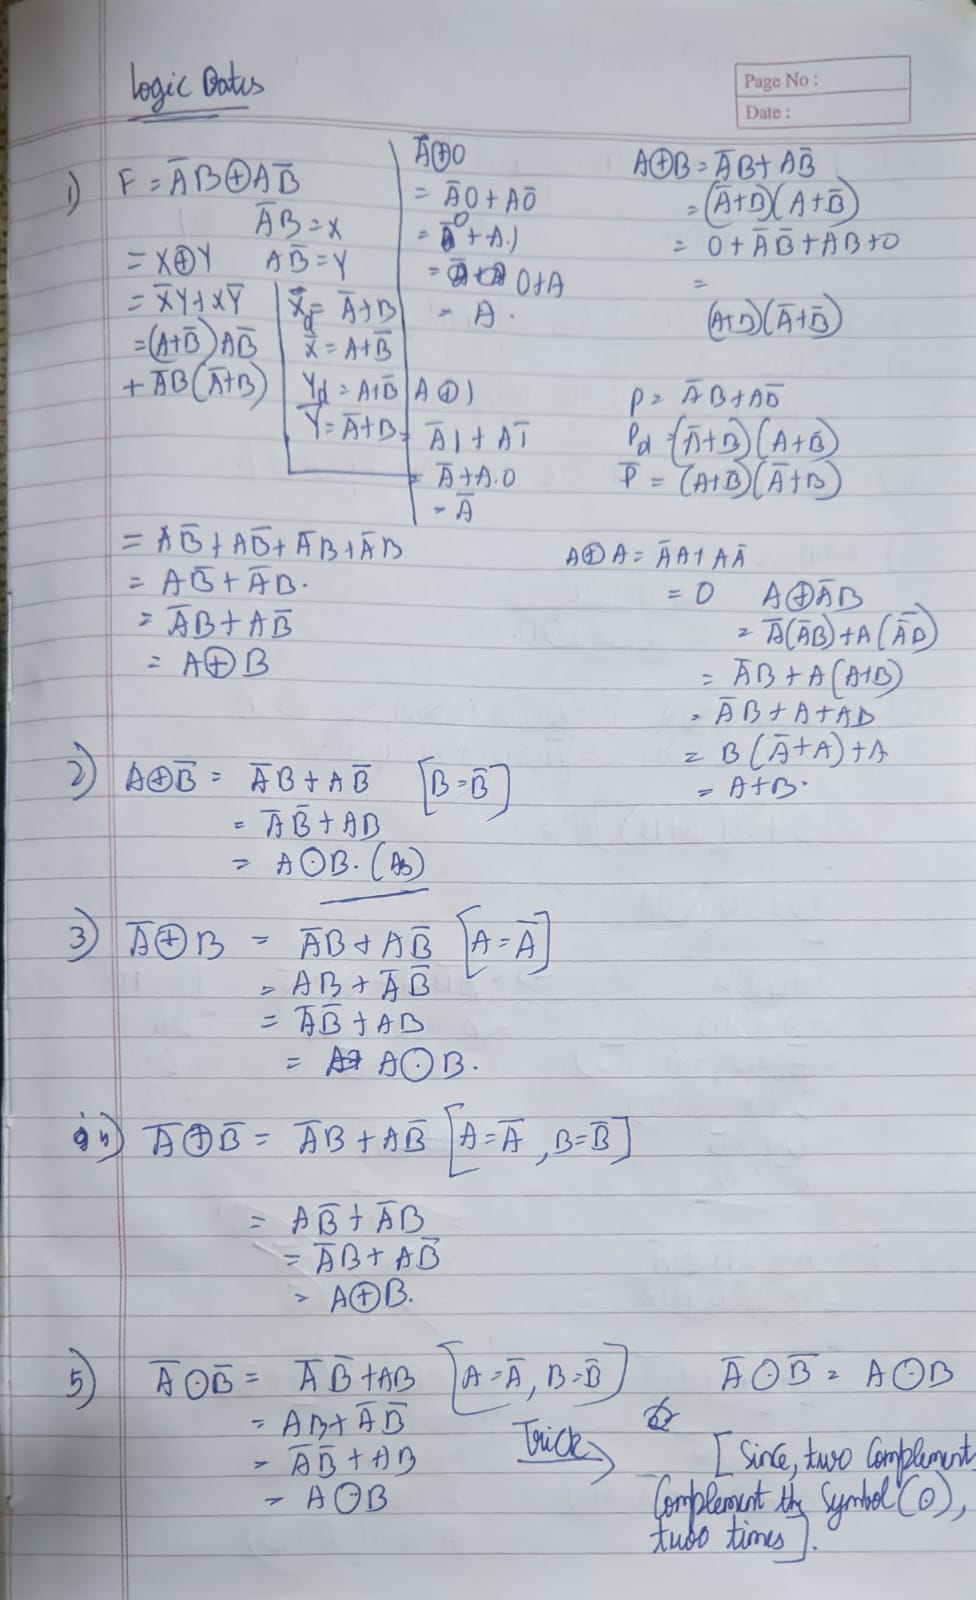 Logic Gates
Page No :
Date :
1) F = A̅B⊕AB̅
A̅B = X
= X⊕Y AB̅ = Y
= X̅Y + XY̅
= (A+B̅)AB̅
+ A̅B(A̅+B)
X_d = A̅+B
X̅ = A+B̅
Y_d = A+B̅
Y̅ = A̅+B
= AB̅ + AB̅ + A̅B + A̅B
= AB̅ + A̅B.
= A̅B + AB̅
= A⊕B
A⊕0
= A̅0 + A0̅
= 0 + A.1
= 0+A
= A.
A⊕1
= A̅1 + A1̅
= A̅ + A.0
= A̅
A⊕B = A̅B + AB̅
= (A̅+B)(A+B̅)
= 0 + A̅B̅ + AB + 0
=
(A+B)(A̅+B̅)
P = A̅B + AB̅
P_d = (A̅+B)(A+B̅)
P̅ = (A+B̅)(A̅+B)
A⊕A = A̅A + AA̅
= 0
A⊕A̅B
= A̅(A̅B) + A(A̅B)̅
= A̅B + A(A+B̅)
= A̅B + A + AB
= B(A̅+A) + A
= A+B.
2) A⊕B̅ = A̅B + AB̅ [B = B̅]
= A̅B̅ + AB
= A⊙B. (As)
3) A̅⊕B = A̅B + AB̅ [A = A̅]
= AB + A̅B̅
= A̅B̅ + AB
= A⊙B.
4) A̅⊕B̅ = A̅B + AB̅ [A = A̅, B = B̅]
= AB̅ + A̅B
= A̅B + AB̅
= A⊕B.
5) A̅⊙B̅ = A̅B̅ + AB [A = A̅, B = B̅]
= AB + A̅B̅
= A̅B̅ + AB
= A⊙B
A̅⊙B̅ = A⊙B
Trick → [Since, two Complement
Complement the Symbol (⊙),
two times].